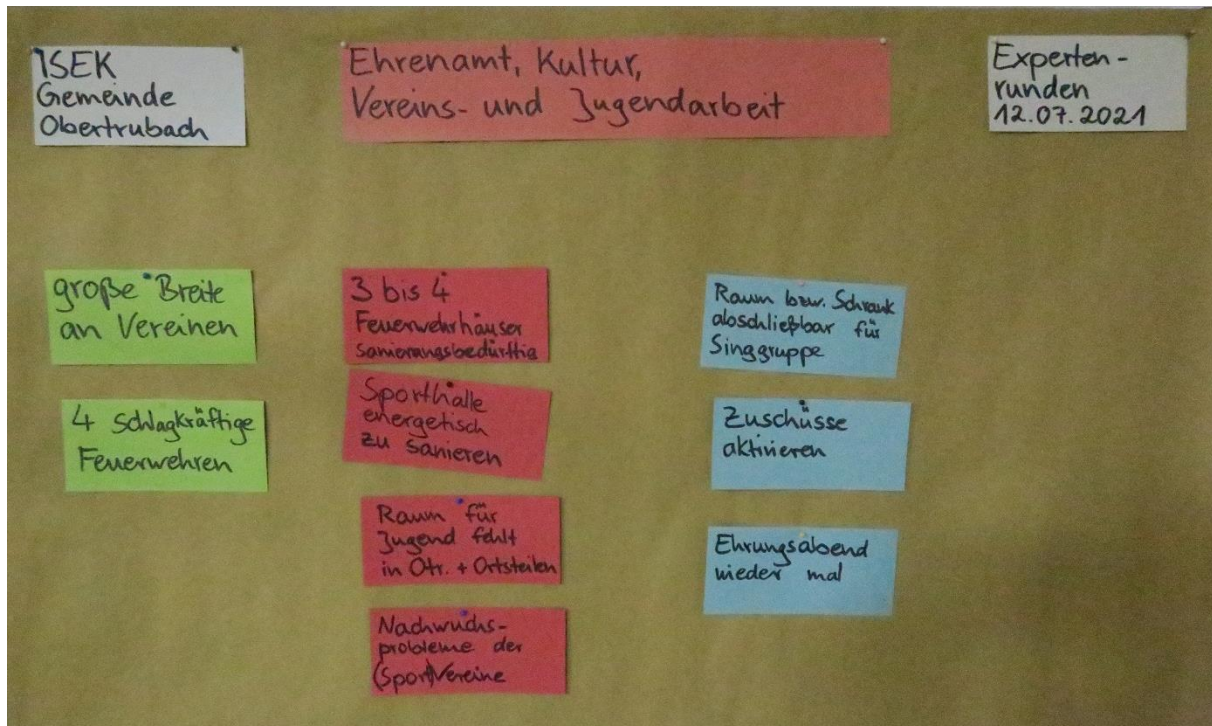 ISEK
Gemeinde
Obertrubach
Ehrenamt, Kultur,
Vereins- und Jugendarbeit
Experten-
runden
12.07.2021
große Breite
an Vereinen
4 schlagkräftige
Feuerwehren
3 bis 4
Feuerwehrhäuser
sanierungsbedürftig
Sporthalle
energetisch
zu sanieren
Raum für
Jugend fehlt
in Otr. + Ortsteilen
Nachwuchs-
probleme der
(Sport)Vereine
Raum bzw. Schrank
abschließbar für
Singgruppe
Zuschüsse
aktivieren
Ehrungsabend
wieder mal